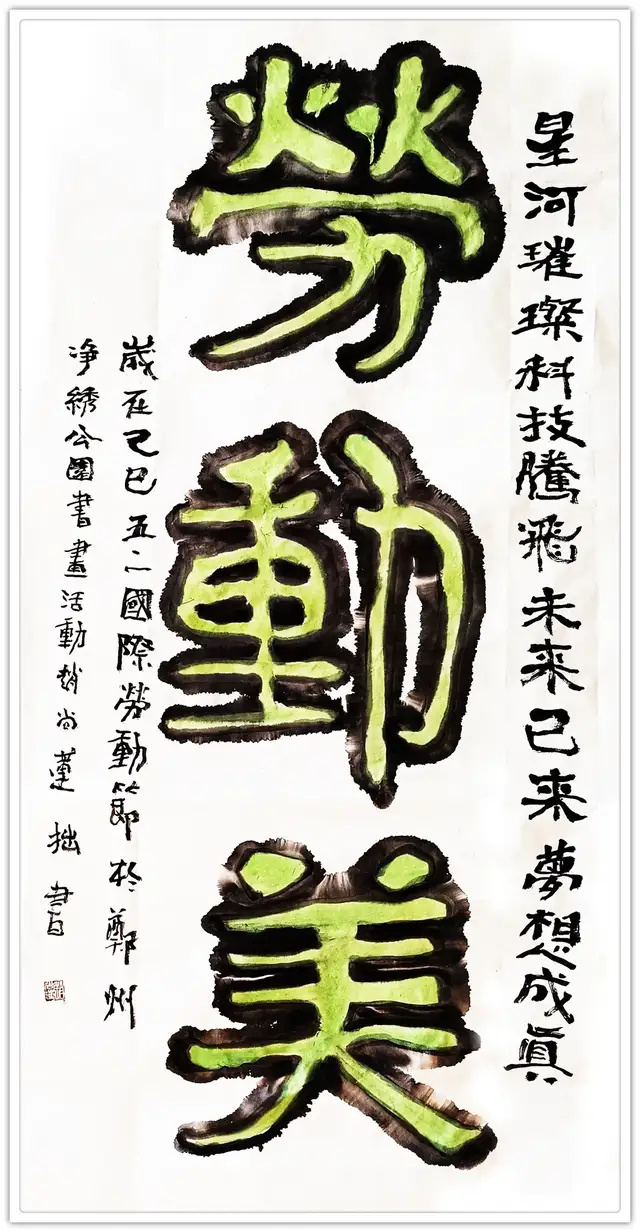 星河璀璨科技騰飛未来已来夢想成眞
勞動美
歲在乙巳五一國際勞動節於鄭州
净綉公園書畫活動趙尚蓮拙書